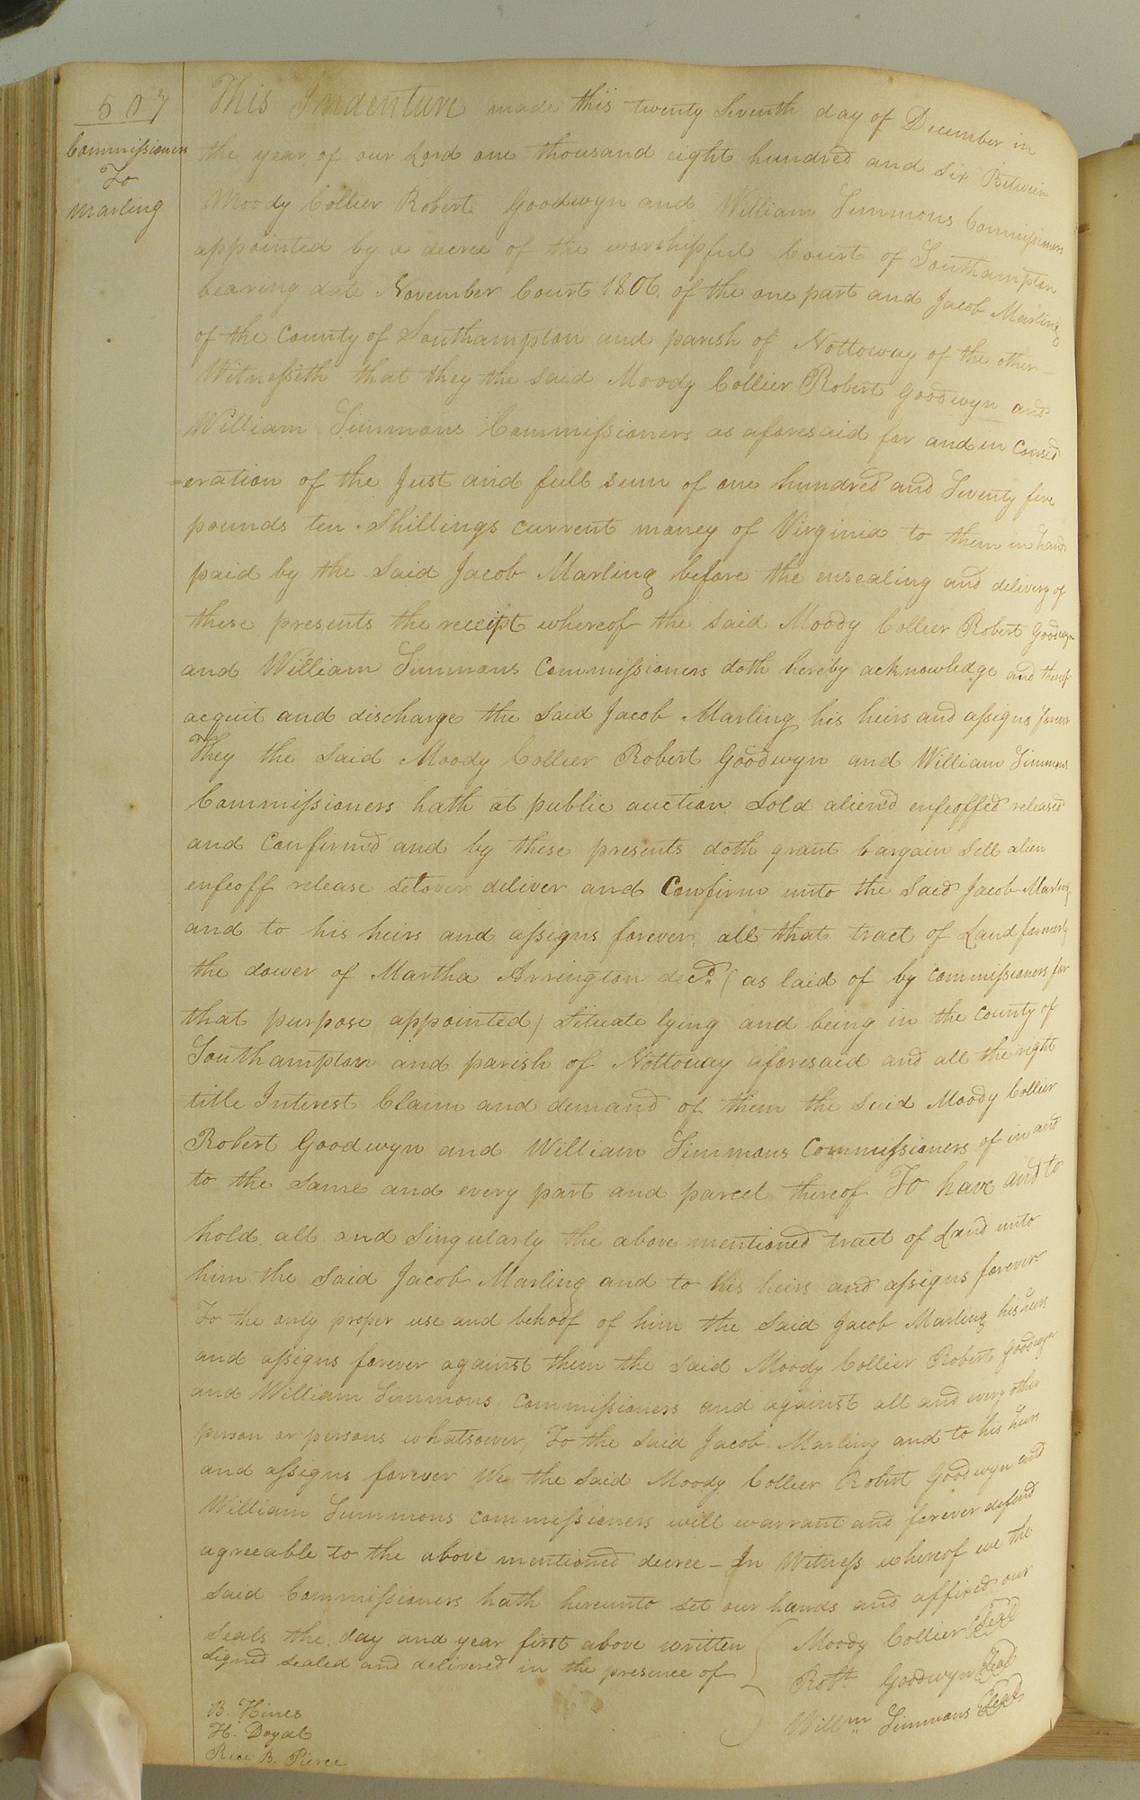 507
Commissioners
To
Marling
This Indenture made this twenty Seventh day of December in
the year of our Lord one thousand eight hundred and Six Between
Moody Collier Robert Goodwyn and William Simmons Commissioners
appointed by a decree of the worshipful Court of Southampton
bearing date November Court 1806. of the one part and Jacob Marling
of the County of Southampton and parish of Nottoway of the other—
Witnesseth that they the said Moody Collier Robert Goodwyn and
William Simmons Commissioners as aforesaid for and in Consid
=eration of the Just and full sum of one hundred and Seventy five
pounds ten Shillings current money of Virginia to them in hand
paid by the said Jacob Marling before the ensealing and delivery of
these presents the receipt whereof the said Moody Collier Robert Goodwyn
and William Simmons Commissioners doth hereby acknowledge and thereof
acquit and discharge the said Jacob Marling his heirs and assigns forever
They the said Moody Collier Robert Goodwyn and William Simmons
Commissioners hath at public auction Sold alien'd enfeoffed released
and Confirmd and by these presents doth grant bargain sell alien
enfeoff release setover deliver and Confirm unto the Said Jacob Marling
and to his heirs and assigns forever all that tract of Land formerly
the dower of Martha Arrington decd. (as laid of by commissioners for
that purpose appointed) situate lying and being in the County of
Southampton and parish of Nottoway aforesaid and all the right
title Interest Claim and demand of them the Said Moody Collier
Robert Goodwyn and William Simmons Commissioners of in and
to the Same and every part and parcel thereof To have and to
hold all and Singularly the above mentioned tract of Land unto
him the said Jacob Marling and to his heirs and assigns forever
To the only proper use and behoof of him the Said Jacob Marling his heirs
and assigns forever against them the said Moody Collier Robert Goodwyn
and William Simmons Commissioners and against all and every other
person or persons whatsoever, To the said Jacob Marling and to his heirs
and assigns forever We the Said Moody Collier Robert Goodwyn and
William Simmons commissioners will warrant and forever defend
agreeable to the above mentioned decree — In Witness whereof we the
said Commissioners hath hereunto set our hands and affixed our
Seals the day and year first above written
Signed sealed and delivered in the presence of
Moody Collier Seal
Robt. Goodwyn Seal
Willm. Simmons Seal
B. Hines
H. Doyal
Rice B. Pierce